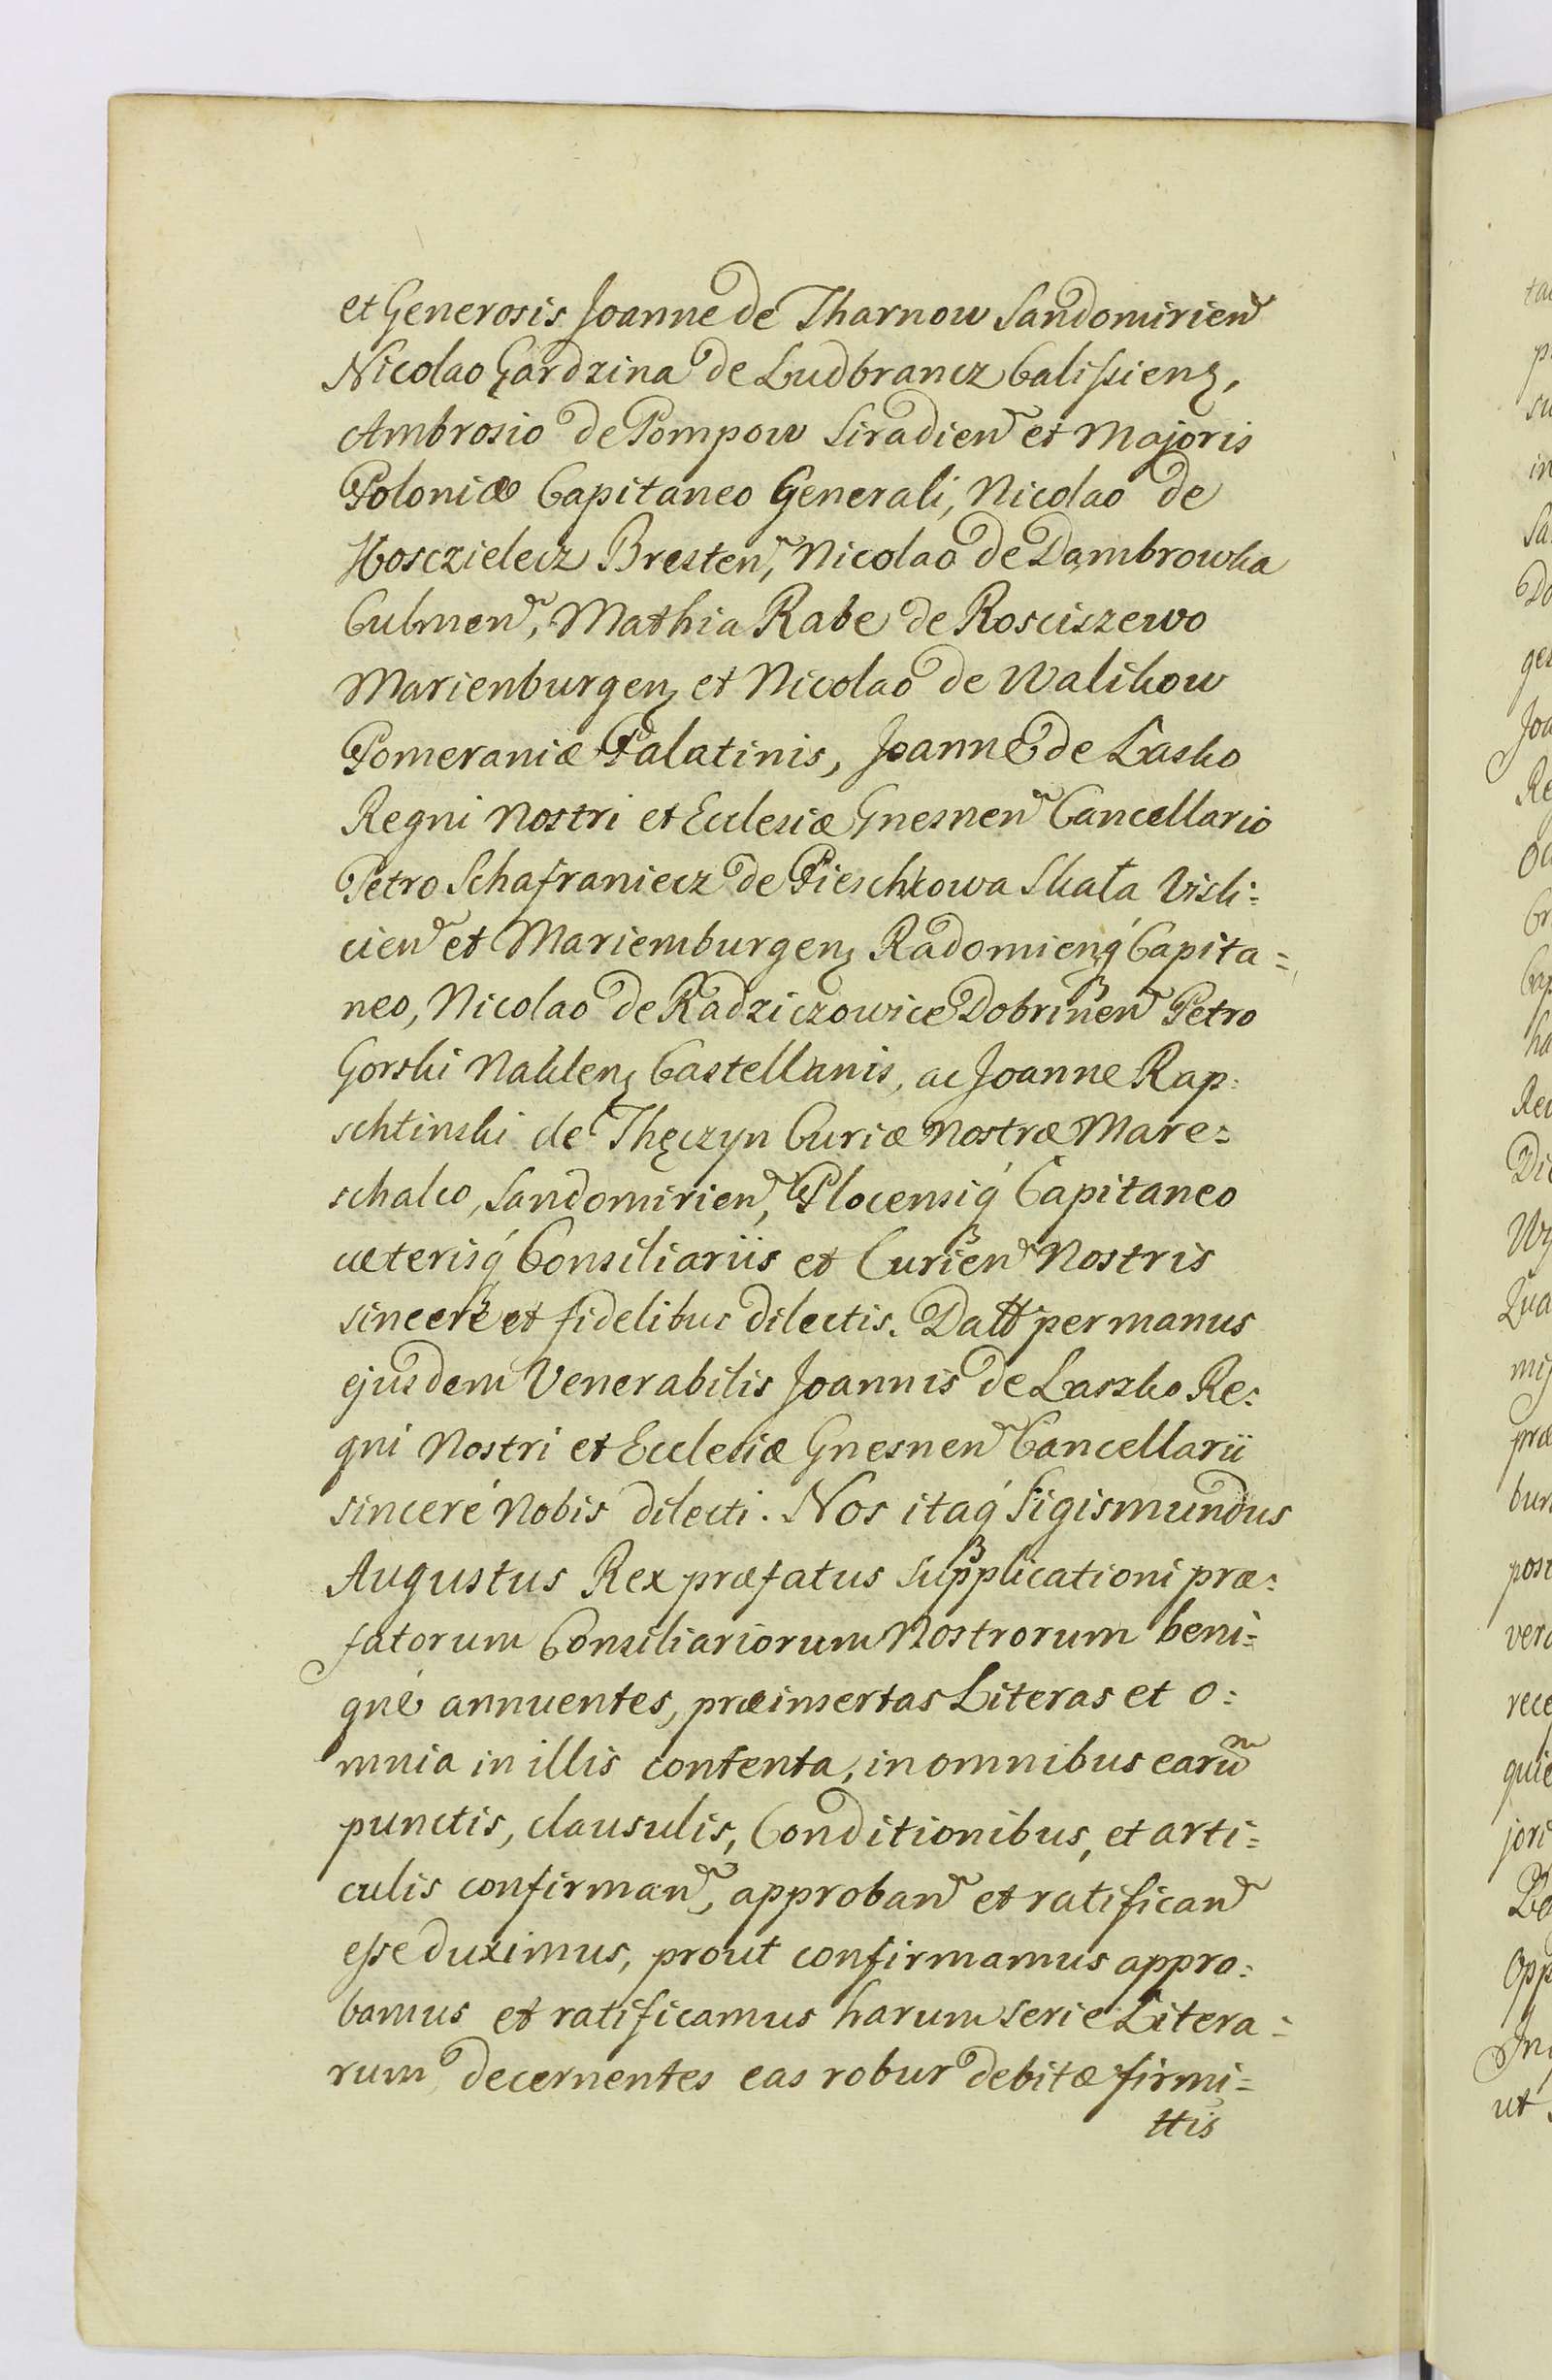 et Generosis Joanne de Tharnow Sandomirien̄
Nicolao Gardzina de Ludbrancz Calissienȝ,
Ambrosio de Pompow Siradien̄ et Majoris
Poloniæ Capitaneo Generali, Nicolao de
Kosczielecz Bresten̄, Nicolao de Dambrowka
Culmen̄, Mathia Rabe de Rosciszewo
Marienburgenȝ et Nicolao de Walikow
Pomeraniæ Palatinis, Joanne de Lasko
Regni Nostri et Ecclesiæ Gnesnen̄ Cancellario
Petro Schafraniecz de Pieschkowa Skała Visli=
cien̄ et Mariemburgenȝ Radomienȝq́ Capita=
neo, Nicolao de Radziczowice Dobrinen̄ Petro
Gorski Naklenȝ Castellanis, ac Joanne Rap=
schtinski de Thęczyn Curiæ Nostræ Mare=
schalco, Sandomirien̄, Plocensiq́ Capitaneo
cæterisq́ Consiliariis et Curien̄ Nostris
sincere et fidelibus dilectis. Datt per manus
ejusdem Venerabilis Joannis de Laszko Re=
gni Nostri et Ecclesiæ Gnesnen̄ Cancellarii
sinceré Nobis dilecti. Nos itaq́ Sigismundus
Augustus Rex præfatus supplicationi præ=
fatorum Consiliariorum Nostrorum beni=
gné annuentes, præinsertas Literas et o=
mnia in illis contenta, in omnibus earum̄
punctis, clausulis, Conditionibus, et arti=
culis confirman̄, approban̄ et ratifican̄
esse duximus, prout confirmamus appro=
bamus et ratificamus harum serie Litera=
rum decernentes eas robur debitæ firmi=
ttis